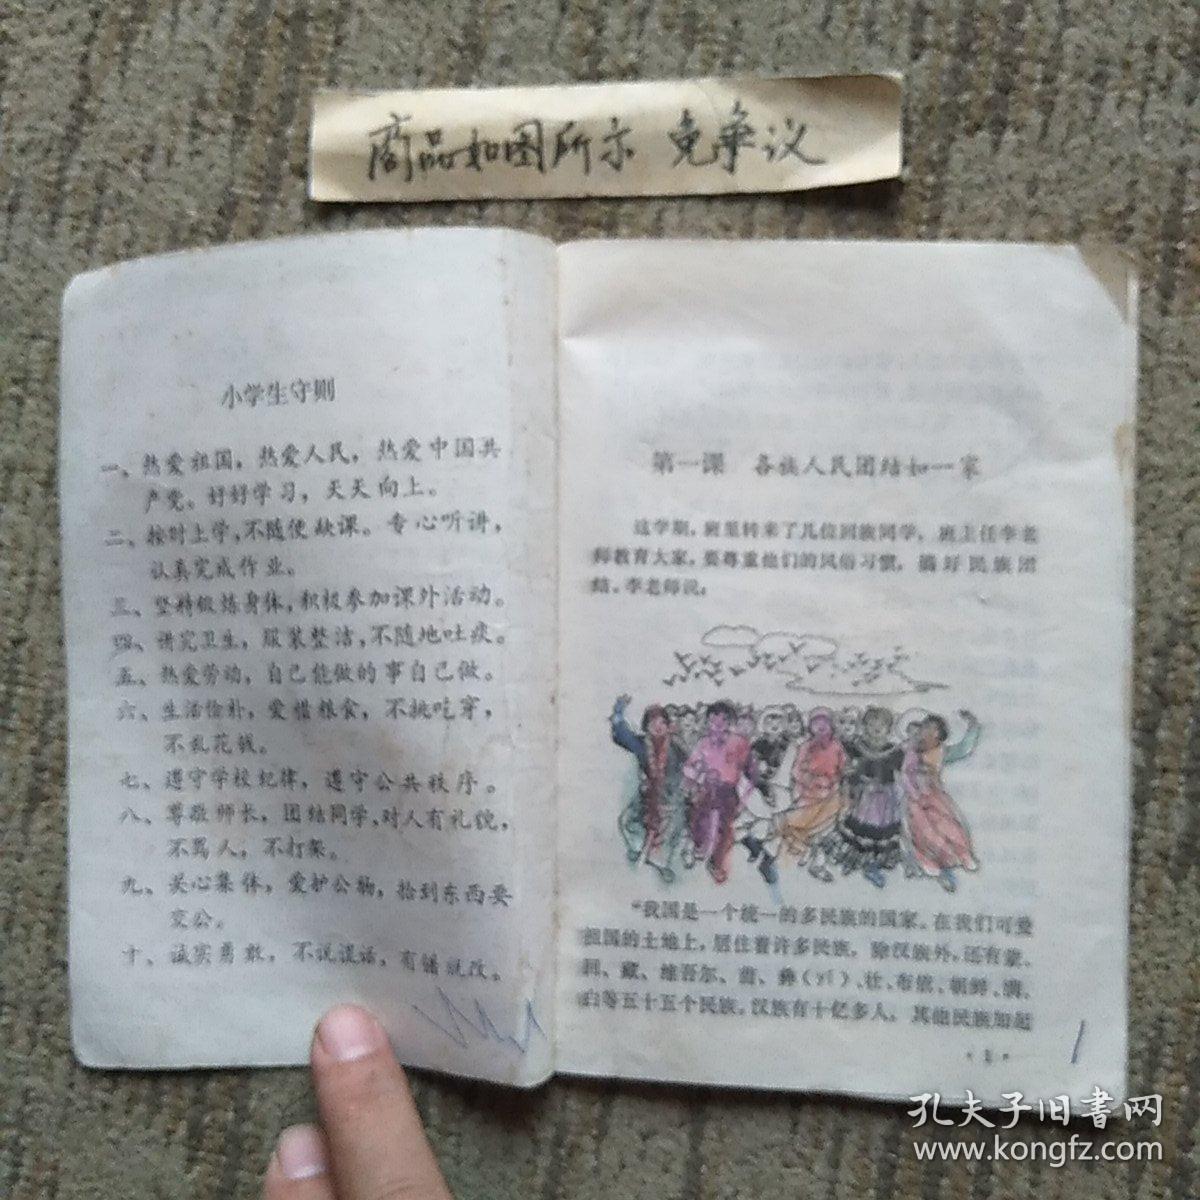 商品如图所示 免争议
小学生守则
一、热爱祖国，热爱人民，热爱中国共
产党。好好学习，天天向上。
二、按时上学，不随便缺课。专心听讲，
认真完成作业。
三、坚持锻炼身体，积极参加课外活动。
四、讲究卫生，服装整洁，不随地吐痰。
五、热爱劳动，自己能做的事自己做。
六、生活俭朴，爱惜粮食，不挑吃穿，
不乱花钱。
七、遵守学校纪律，遵守公共秩序。
八、尊敬师长，团结同学，对人有礼貌，
不骂人，不打架。
九、关心集体，爱护公物，拾到东西要
交公。
十、诚实勇敢，不说谎话，有错就改。
第一课 各族人民团结如一家
这学期，班里转来了几位回族同学，班主任李老
师教育大家，要尊重他们的风俗习惯，搞好民族团
结。李老师说：
“我国是一个统一的多民族的国家。在我们可爱
祖国的土地上，居住着许多民族，除汉族外，还有蒙、
回、藏、维吾尔、苗、彝（yí）、壮、布依、朝鲜、满、
白等五十五个民族。汉族有十亿多人，其他民族加起
· 1 ·
孔夫子旧书网
www.kongfz.com